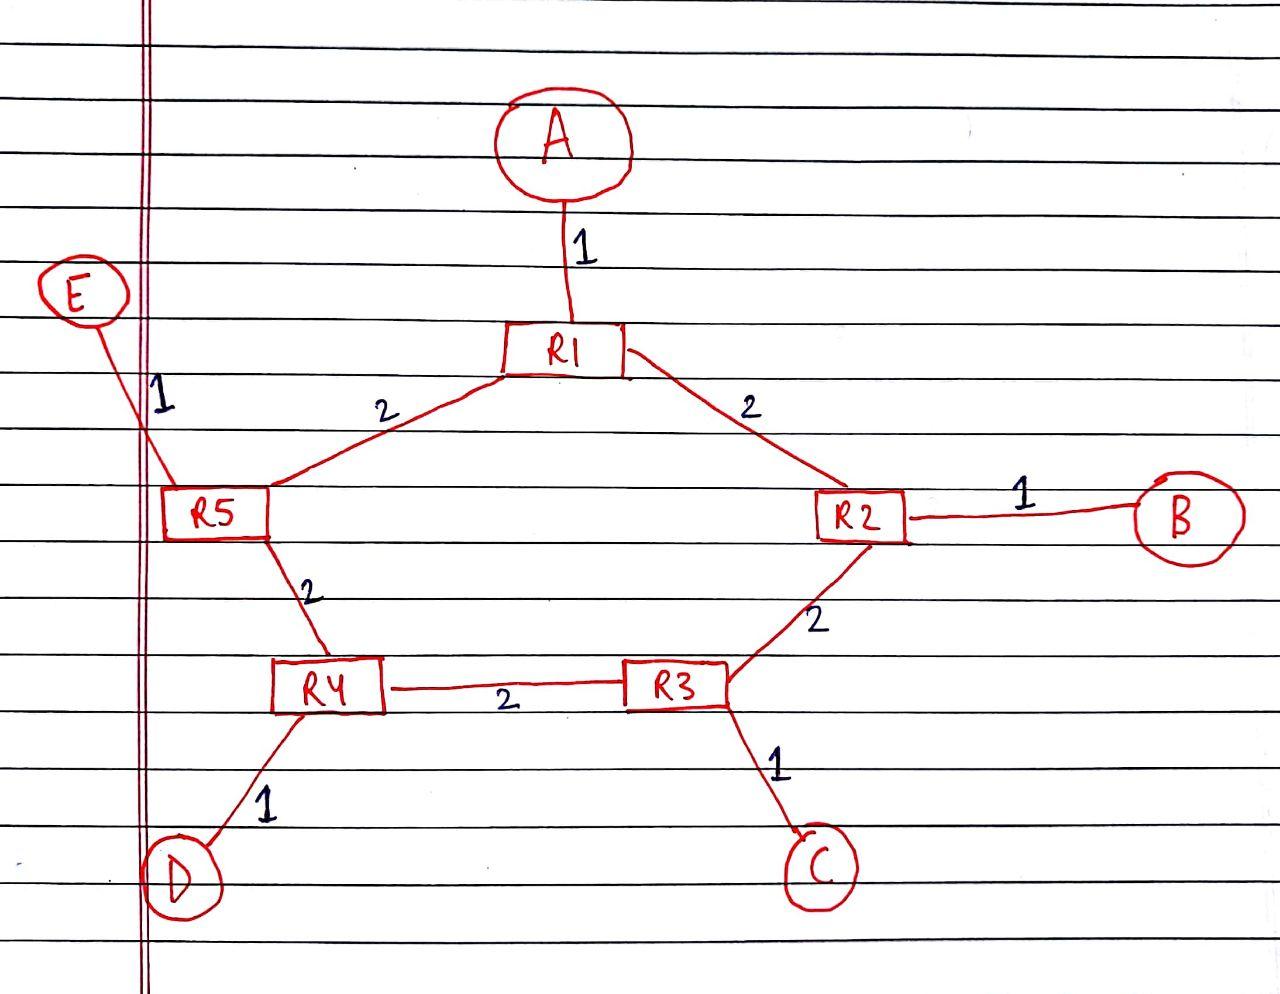 A
1
E
R1
1
2
2
R5
R2
1
B
2
2
R4
2
R3
1
1
D
C